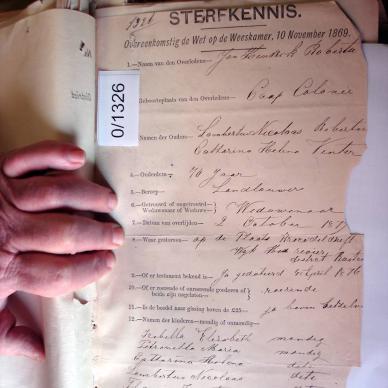 1326
STERFKENNIS.
Overeenkomstig de Wet op de Weeskamer, 10 November 1869.
0/1326
1.—Naam van den Overledene— Jan Hendrik Roberts
Geboorteplaats van den Overledene— Caap Colonie
Namen der Ouders— Lambertus Nicolaas
Catharina Helena Venter
4.—Ouderdom— 70 Jaar
5.—Beroep— Landbouwer
6.—Getrouwd of ongetrouwd—
Weduwnaar of Weduwe— Weduwenaar
7.—Datum van overlijden— 2 October 187
8.—Waar gestorven— op de Plaats
district
9.—Of er testament bekend is— Ja gedateerd April 1876
10.—Of er roerende of onroerende goederen of
beide zijn nagelaten— roerende
11.—Is de boedel naar gissing boven de £25— ja boven
12.—Namen der kinderen—mondig of onmondig—
Isabella Elizabeth mondig
Petronella Maria mondig
Catharina Helena dito
Lambertus Nicolaas dito